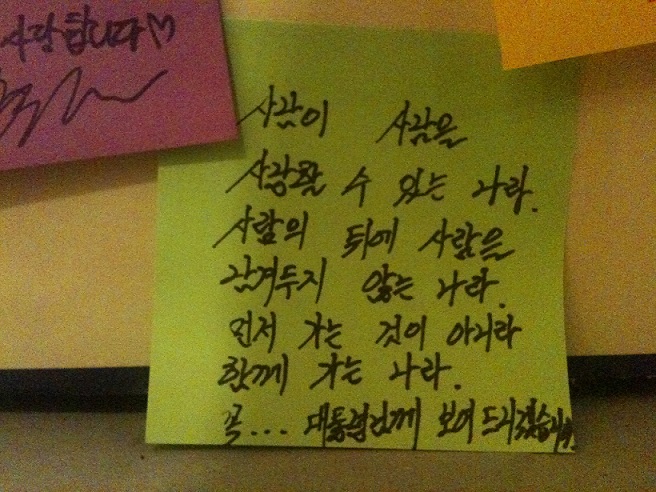 사랑합니다♡
사람이 사람을
사랑할 수 있는 나라.
사람의 뒤에 사람을
남겨두지 않는 나라.
먼저 가는 것이 아니라
함께 가는 나라.
꼭... 대통령님께 보여드리겠습니다.